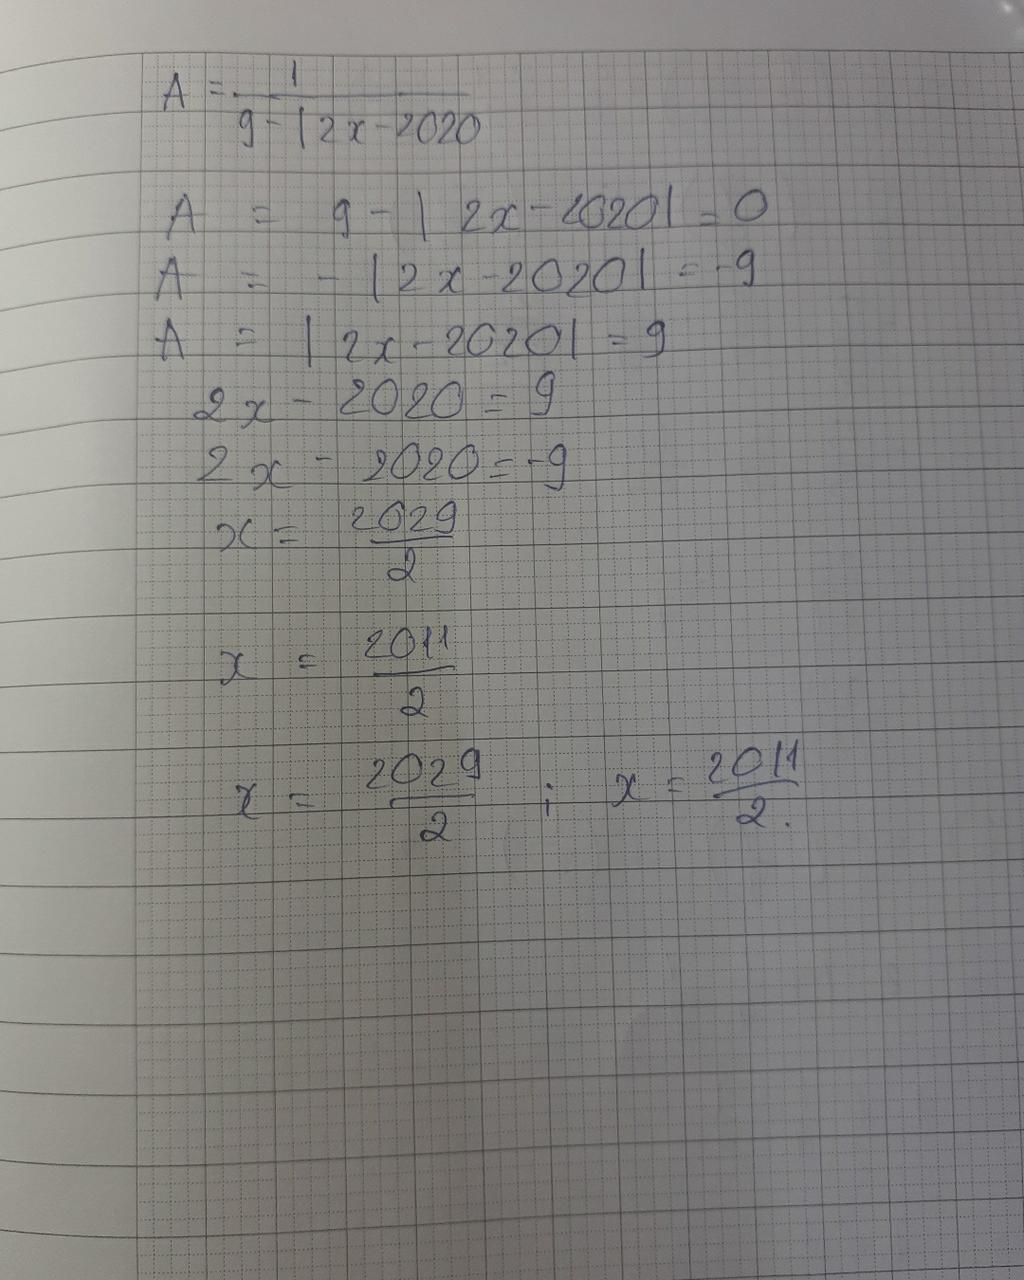 A = 1
9 - | 2x - 2020
A = 9 - | 2x - 2020 | = 0
A = - | 2x - 2020 | = -9
A = | 2x - 2020 | = 9
2x - 2020 = 9
2x - 2020 = -9
x = 2029
2
x = 2011
2
x = 2029 ; x = 2011
2 2.